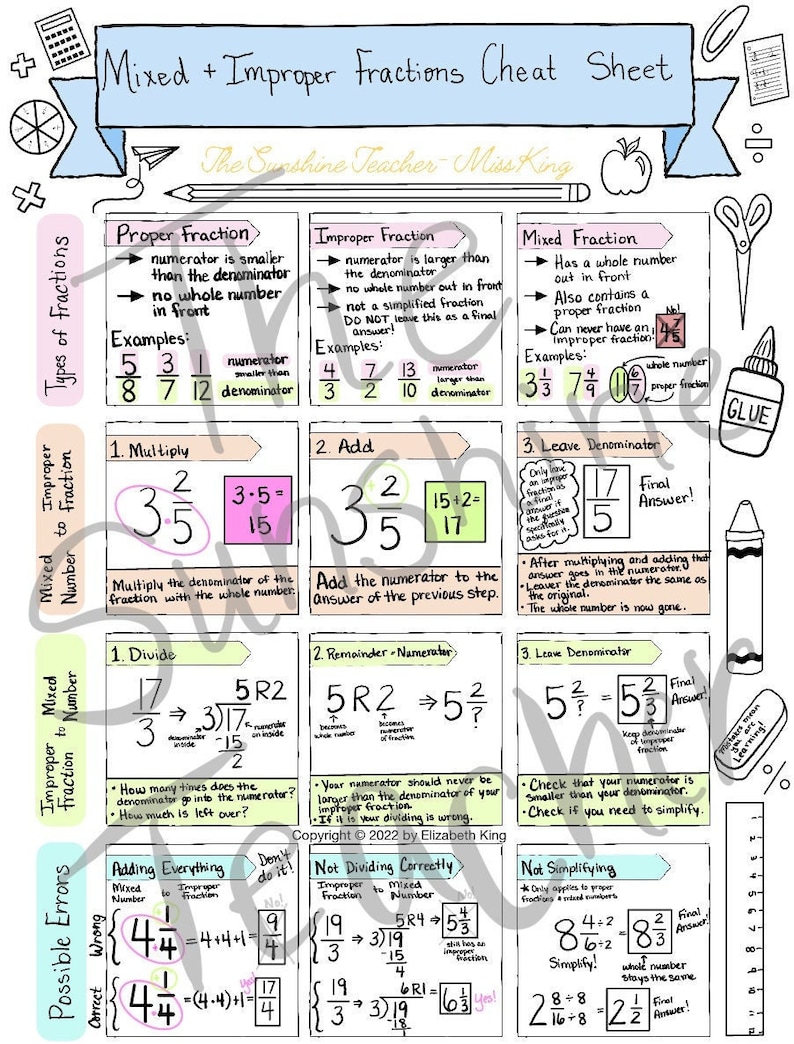 Mixed + Improper Fractions Cheat Sheet
The Sunshine Teacher - Miss King
The Sunshine Teacher
Types of Fractions
Proper Fraction
→ numerator is smaller
than the denominator
→ no whole number
in front
Examples:
5/8 3/7 1/12
numerator
smaller than
denominator
Improper Fraction
→ numerator is larger than
the denominator
→ no whole number out in front
→ not a simplified fraction
DO NOT leave this as a final
answer!
Examples:
4/3 7/2 13/10
numerator
larger than
denominator
Mixed Fraction
→ Has a whole number
out in front
→ Also contains a
proper fraction
→ Can never have an
improper fraction!
No!
4 7/5
Examples:
3 1/3 7 4/9 11 6/7
whole number
proper fraction
GLUE
Mixed Number to Improper Fraction
1. Multiply
3 2/5
3·5=
15
Multiply the denominator of the
fraction with the whole number.
2. Add
3 + 2/5
15+2=
17
Add the numerator to the
answer of the previous step.
3. Leave Denominator
Only leave
an improper
fraction as
a final
answer if
the question
specifically
asks for it.
17/5
Final
Answer!
• After multiplying and adding that
answer goes in the numerator.
• Leaver the denominator the same as
the original.
• The whole number is now gone.
Improper Fraction to Mixed Number
1. Divide
17/3 ⇒
5 R2
3)17
-15
2
denominator
inside
numerator
on inside
• How many times does the
denominator go into the numerator?
• How much is left over?
2. Remainder = Numerator
5 R 2 ⇒ 5 2/?
becomes
whole number
becomes
numerator
of fraction
• Your numerator should never be
larger than the denominator of your
improper fraction.
• If it is your dividing is wrong.
3. Leave Denominator
5 2/? = 5 2/3
Final
Answer!
Keep denominator
of improper
fraction
• Check that your numerator is
smaller than your denominator.
• Check if you need to simplify.
mistakes mean
you are
learning!
Copyright © 2022 by Elizabeth King
Possible Errors
Adding Everything
Don't
do it!
Mixed Number to Improper Fraction
Wrong
4 + 1/4 = 4+4+1 = 9/4
No!
Correct
4 · 1/4 = (4·4)+1 = 17/4
Yes!
Not Dividing Correctly
Improper Fraction to Mixed Number
19/3 ⇒
5 R4
3)19
-15
4
⇒ 5 4/3
No!
still has an
improper
fraction
19/3 ⇒
6 R1
3)19
-18
1
= 6 1/3
Yes!
Not Simplifying
* Only applies to proper
fractions & mixed numbers
8 4÷2/6÷2 = 8 2/3
Final
Answer!
Simplify!
whole number
stays the same.
2 8÷8/16÷8 = 2 1/2
Final
Answer!
1
2
3
4
5
6
7
8
9
10
11
12